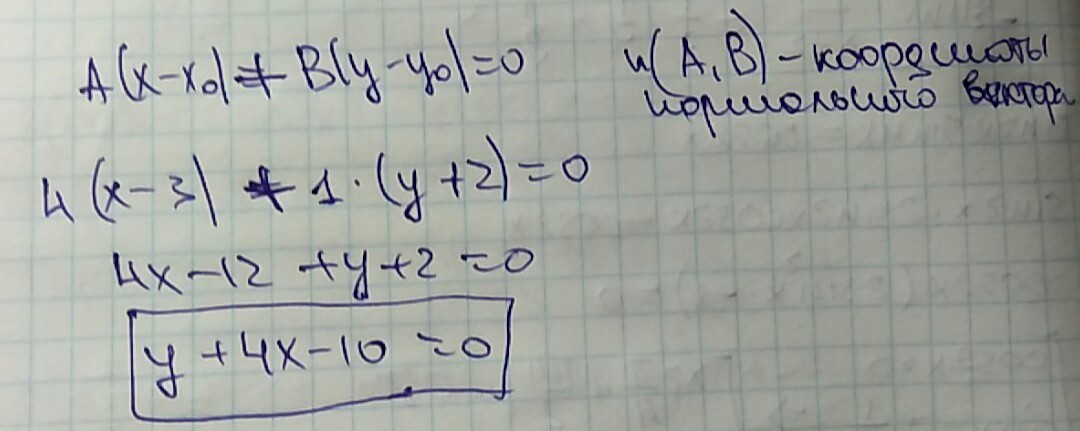 A(x-x₀)+B(y-y₀)=0 n(A,B)-координаты
нормального вектора
4(x-3)+1·(y+2)=0
4x-12+y+2=0
y+4x-10=0